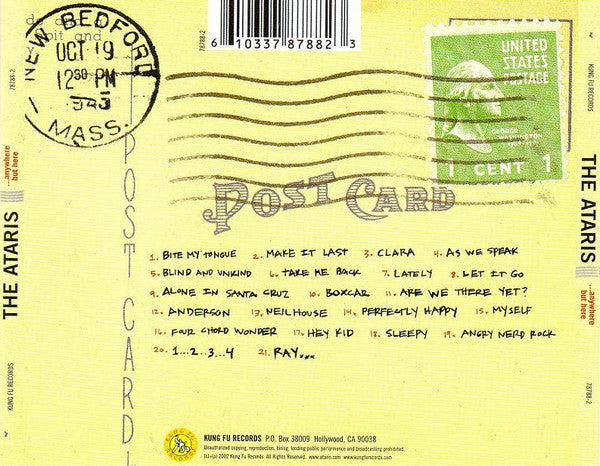 NEW BEDFORD
OCT 19
12 30 PM
1943
MASS.
6 10337 87882 3
78788-2
UNITED
STATES
POSTAGE
GEORGE
WASHINGTON
1 CENT 1
POST CARD
1. BITE MY TONGUE 2. MAKE IT LAST 3. CLARA 4. AS WE SPEAK
5. BLIND AND UNKIND 6. TAKE ME BACK 7. LATELY 8. LET IT GO
9. ALONE IN SANTA CRUZ 10. BOXCAR 11. ARE WE THERE YET?
12. ANDERSON 13. NEILHOUSE 14. PERFECTLY HAPPY 15. MYSELF
16. FOUR CHORD WONDER 17. HEY KID 18. SLEEPY 19. ANGRY NERD ROCK
20. 1...2...3...4 21. RAY...
KUNG FU
RECORDS
KUNG FU RECORDS P.O. Box 38009 Hollywood, CA 90038
Unauthorized copying, reproduction, hiring, lending, public performance and broadcasting prohibited.
(c)+(p) 2002 Kung Fu Records All Rights Reserved. www.ataris.com www.kungfurecords.com
POST CARD
78788-2
...anywhere
but here
THE ATARIS
KUNG FU RECORDS
KUNG FU RECORDS
THE ATARIS
...anywhere
but here
78788-2